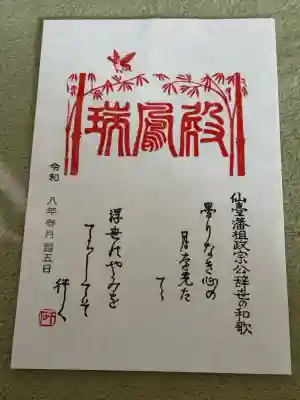 瑞鳳殿
仙臺藩祖政宗公辞世の和歌
曇りなき心の
月を先たてゝ
浮世のやみを
てらしてそ
行く
令和八年壱月
五日